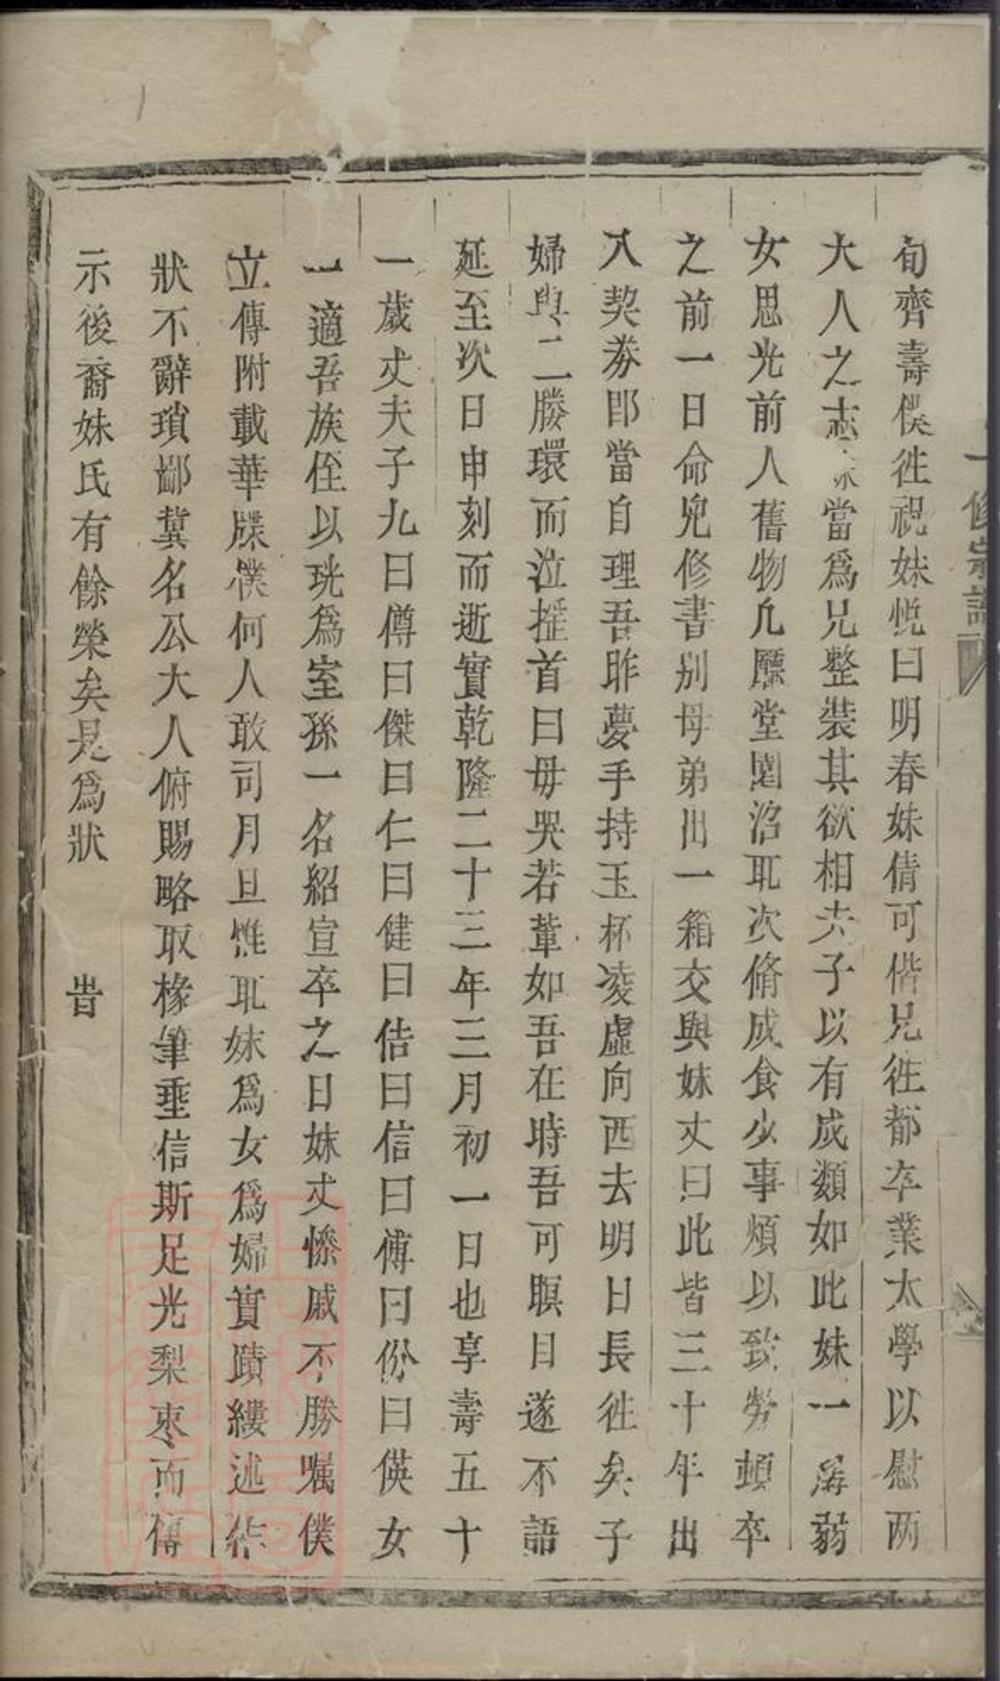 旬齊壽僕徃祝妹悦曰明春妹倩可偕兄徃都卒業太學以慰两
大人之志妹當爲兄整裝其欲相夫子以有成類如此妹一孱弱
女思光前人舊物凢廳堂園沼耴次脩成食少事煩以致勞頓卒
之前一日命兒修書别母弟出一箱交與妹丈曰此皆三十年出
入契券卽當自理吾昨夢手持玉杯凌虛向西去明日長徃矣子
婦與二媵環而泣揺首曰毋哭若輩如吾在時吾可瞑目遂不語
延至次日申刻而逝實乾隆二十三年三月初一日也享壽五十
一歲丈夫子九曰傅曰傑曰仁曰健曰佶曰信曰傳曰份曰僙女
一適吾族侄以珖爲室孫一名紹宣卒之日妹丈慘戚不勝嘱僕
立傳附載華牒僕何人敢司月旦惟耴妹爲女爲婦實蹟縷述作
狀不辭瑣鄙冀名公大人俯賜略取椽筆垂信斯足光梨枣而傳
示後裔妹氏有餘榮矣是爲狀 旹
修宗譜